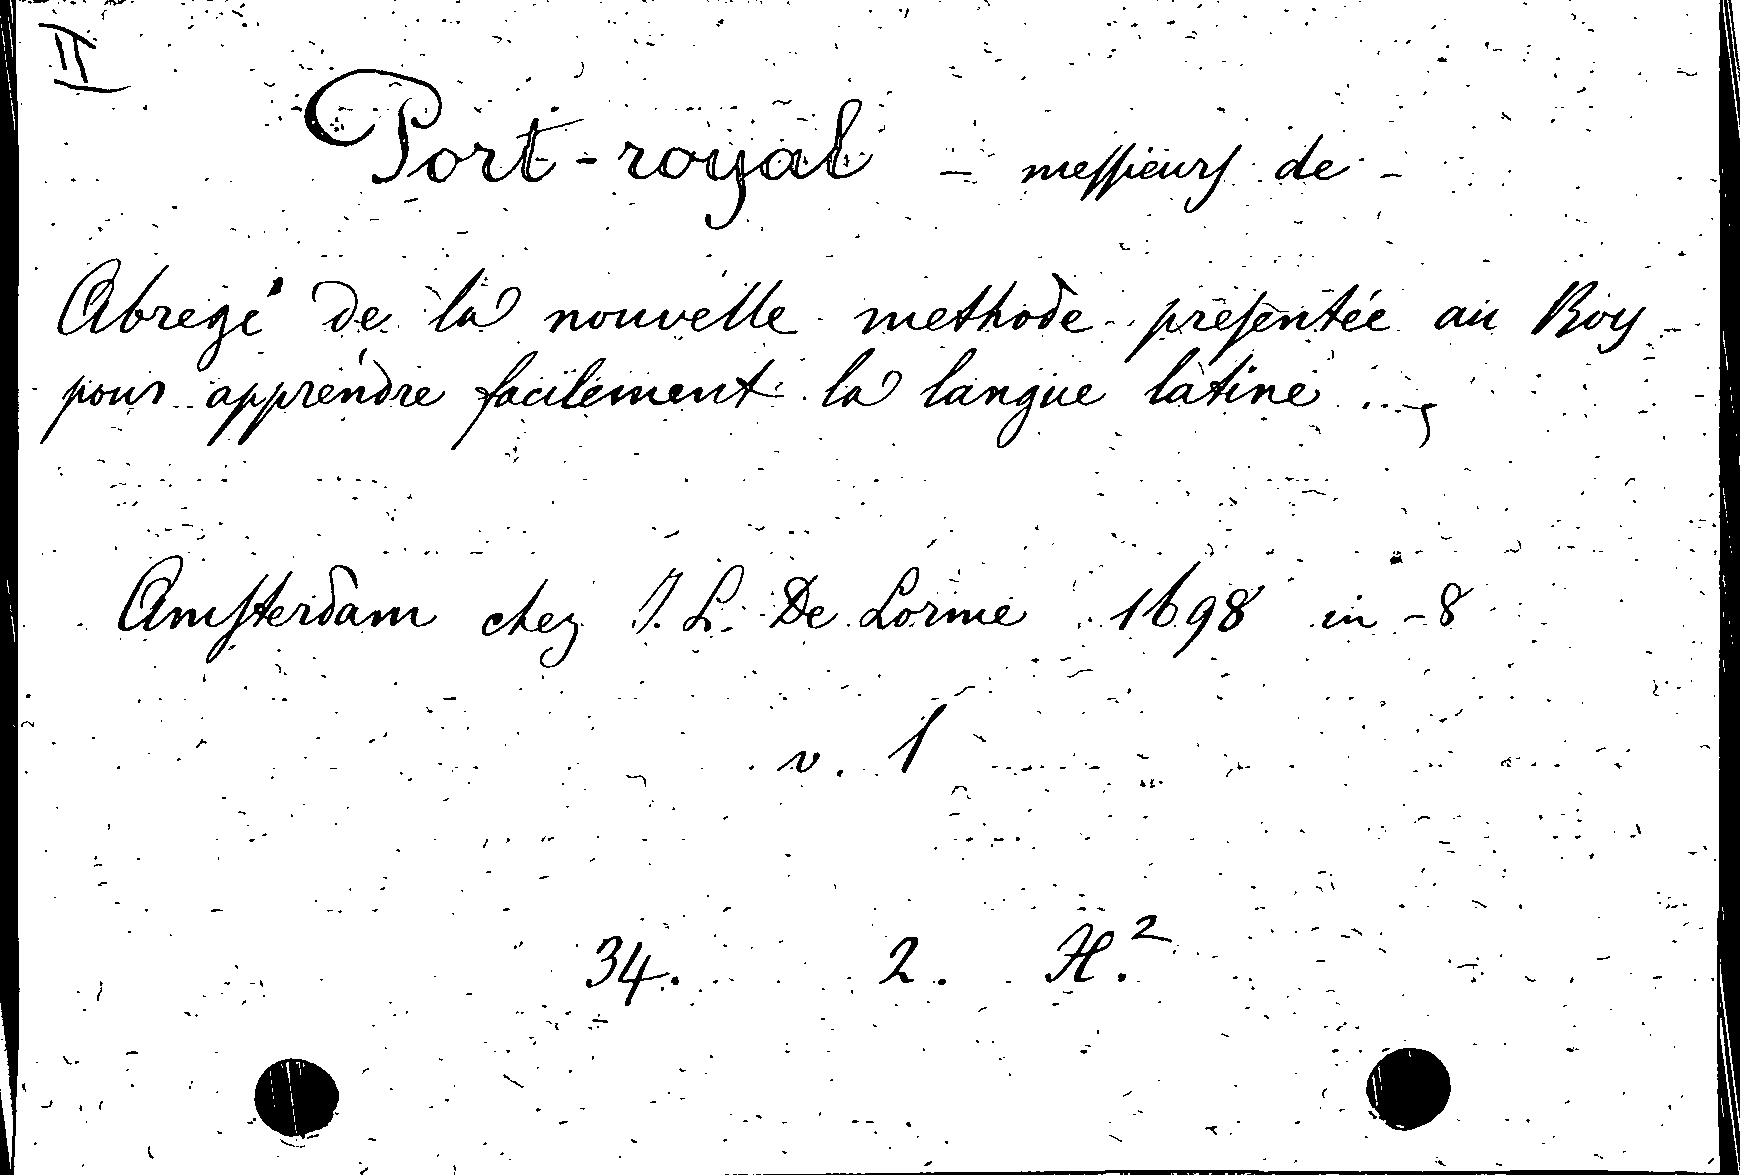 II
Port-royal – meſſieurſ de –
Abregé de la nouvelle methode preſentée au Roy
pour apprendre facilement la langue latine ...,
Amſterdam chez J. L. De Lorme 1698 in-8
v. 1
34. 2. H.²